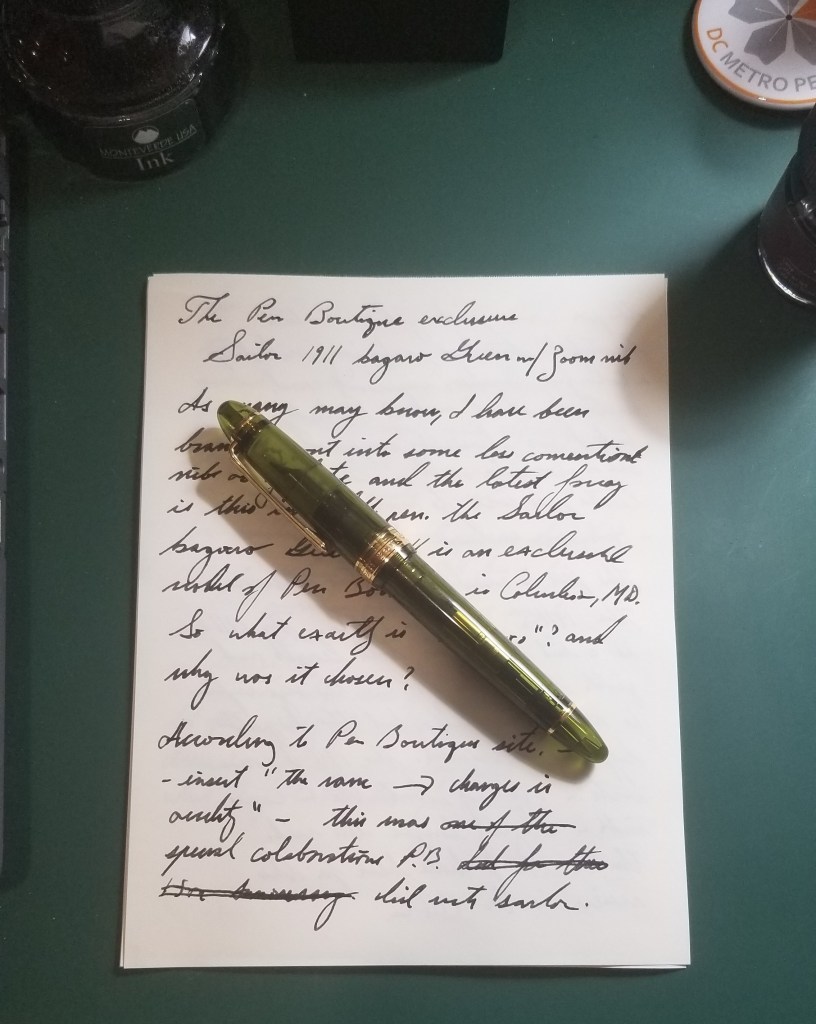 MONTEVERDE USA
Ink
DC METRO PE
The Pen Boutique exclusive
Sailor 1911 bazaro Green w/ Zoom nib
As many may know, I have been
bran nt into some less conventional
nibs o te and the latest foray
is this pen. the Sailor
bazaro Gree is an exclusive
model of Pen Bou in Columbia, MD.
So what exactly is ro"? and
why was it chosen?
According to Pen Boutique site. -
- insert "the name → changes in
acidity" - this was one of the
special colaborations P.B. did for their
15th Anniversary did with sailor.